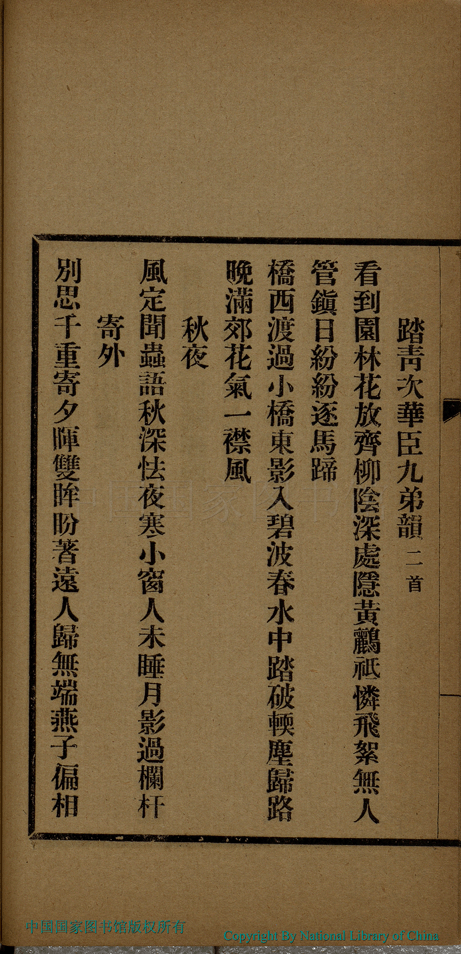 踏靑次華臣九弟韻 二首
看到園林花放齊柳陰深處隱黃鸝祗憐飛絮無人
管鎭日紛紛逐馬蹄
橋西渡過小橋東影入碧波春水中踏破輭塵歸路
晚滿郊花氣一襟風
秋夜
風定聞蟲語秋深怯夜寒小窗人未睡月影過欄杆
寄外
別思千重寄夕暉雙眸盼著遠人歸無端燕子偏相
中国国家图书馆版权所有
Copyright By National Library of China